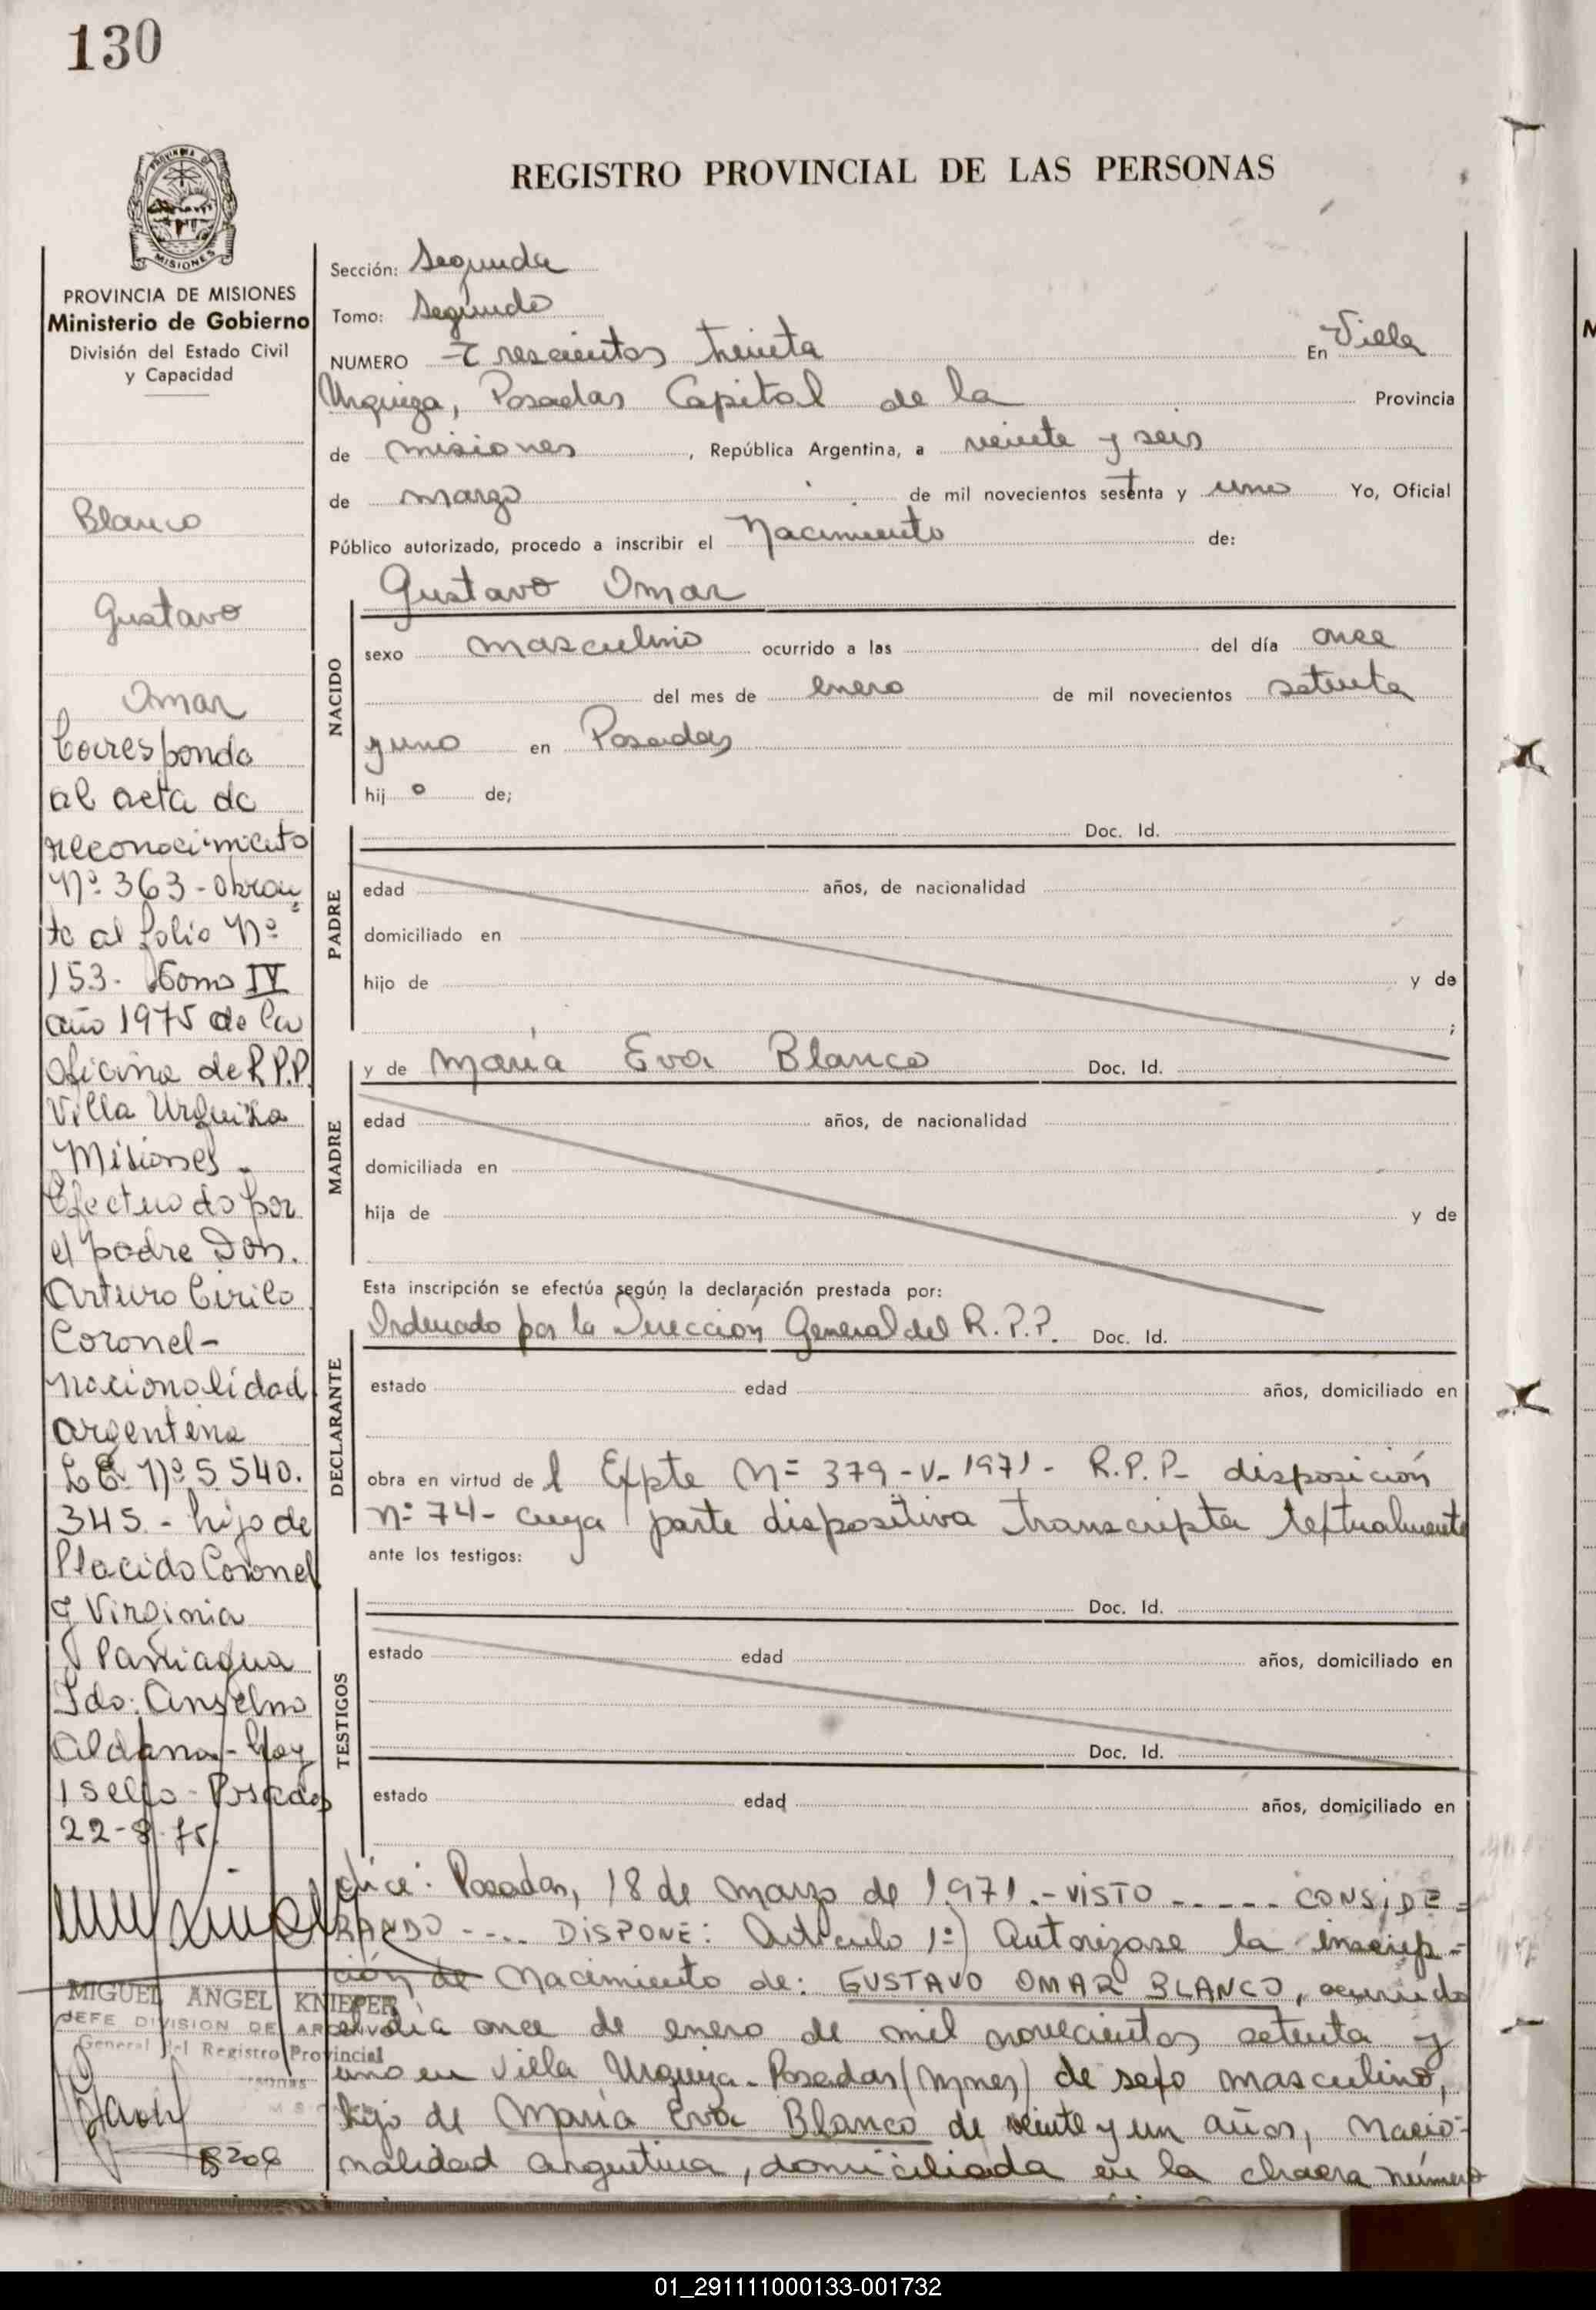 130
REGISTRO PROVINCIAL DE LAS PERSONAS
PROVINCIA DE MISIONES
Ministerio de Gobierno
División del Estado Civil
y Capacidad
Blanco
Gustavo
Omar
Corresponde
al acta de
reconocimiento
Nº 363 - obran
te al folio Nº
153. Tomo IV
año 1975 de la
oficina de R.P.P.
Villa Urquiza
Misiones.
Efectuado por
el padre Don.
Arturo Cirilo
Coronel -
nacionalidad
argentina
L.E. Nº 5.540.
345 - hijo de
Placido Coronel
y Virginia
Paniagua
Fdo: Anselmo
Aldana - hay
1 sello - Posadas
22-8-75.
MIGUEL ANGEL KNIEPER
JEFE DIVISION DE ARCHIVO
General del Registro Provincial
8206
Sección: Segunda
Tomo: Segundo
NUMERO Trescientos treinta En Villa
Urquiza, Posadas Capital de la Provincia
de Misiones, República Argentina, a veinte y seis
de marzo de mil novecientos setenta y uno Yo, Oficial
Público autorizado, procedo a inscribir el Nacimiento de:
Gustavo Omar
NACIDO
sexo masculino ocurrido a las del día once
del mes de enero de mil novecientos setenta
y uno en Posadas
hijo de;
PADRE
Doc. Id.
edad años, de nacionalidad
domiciliado en
hijo de y de
;
MADRE
y de María Eva Blanco Doc. Id.
edad años, de nacionalidad
domiciliada en
hija de y de
Esta inscripción se efectúa según la declaración prestada por:
DECLARANTE
Ordenado por la Dirección General del R.P.P. Doc. Id.
estado edad años, domiciliado en
obra en virtud del Expte Nº 379-V-1971- R.P.P- disposición
nº 74- cuya parte dispositiva transcripta textualmente
ante los testigos:
TESTIGOS
Doc. Id.
estado edad años, domiciliado en
Doc. Id.
estado edad años, domiciliado en
dice: Posadas, 18 de marzo de 1971.- VISTO ----- CONSIDE=
RANDO ---- DISPONE: Artículo 1º) Autorizase la inscrip=
ción de Nacimiento de: GUSTAVO OMAR BLANCO, ocurrido
el día once de enero de mil novecientos setenta y
uno en Villa Urquiza - Posadas (Mnes) de sexo masculino,
hijo de María Eva Blanco de veinte y un años, nacio=
nalidad argentina, domiciliada en la chacra número
01_291111000133-001732